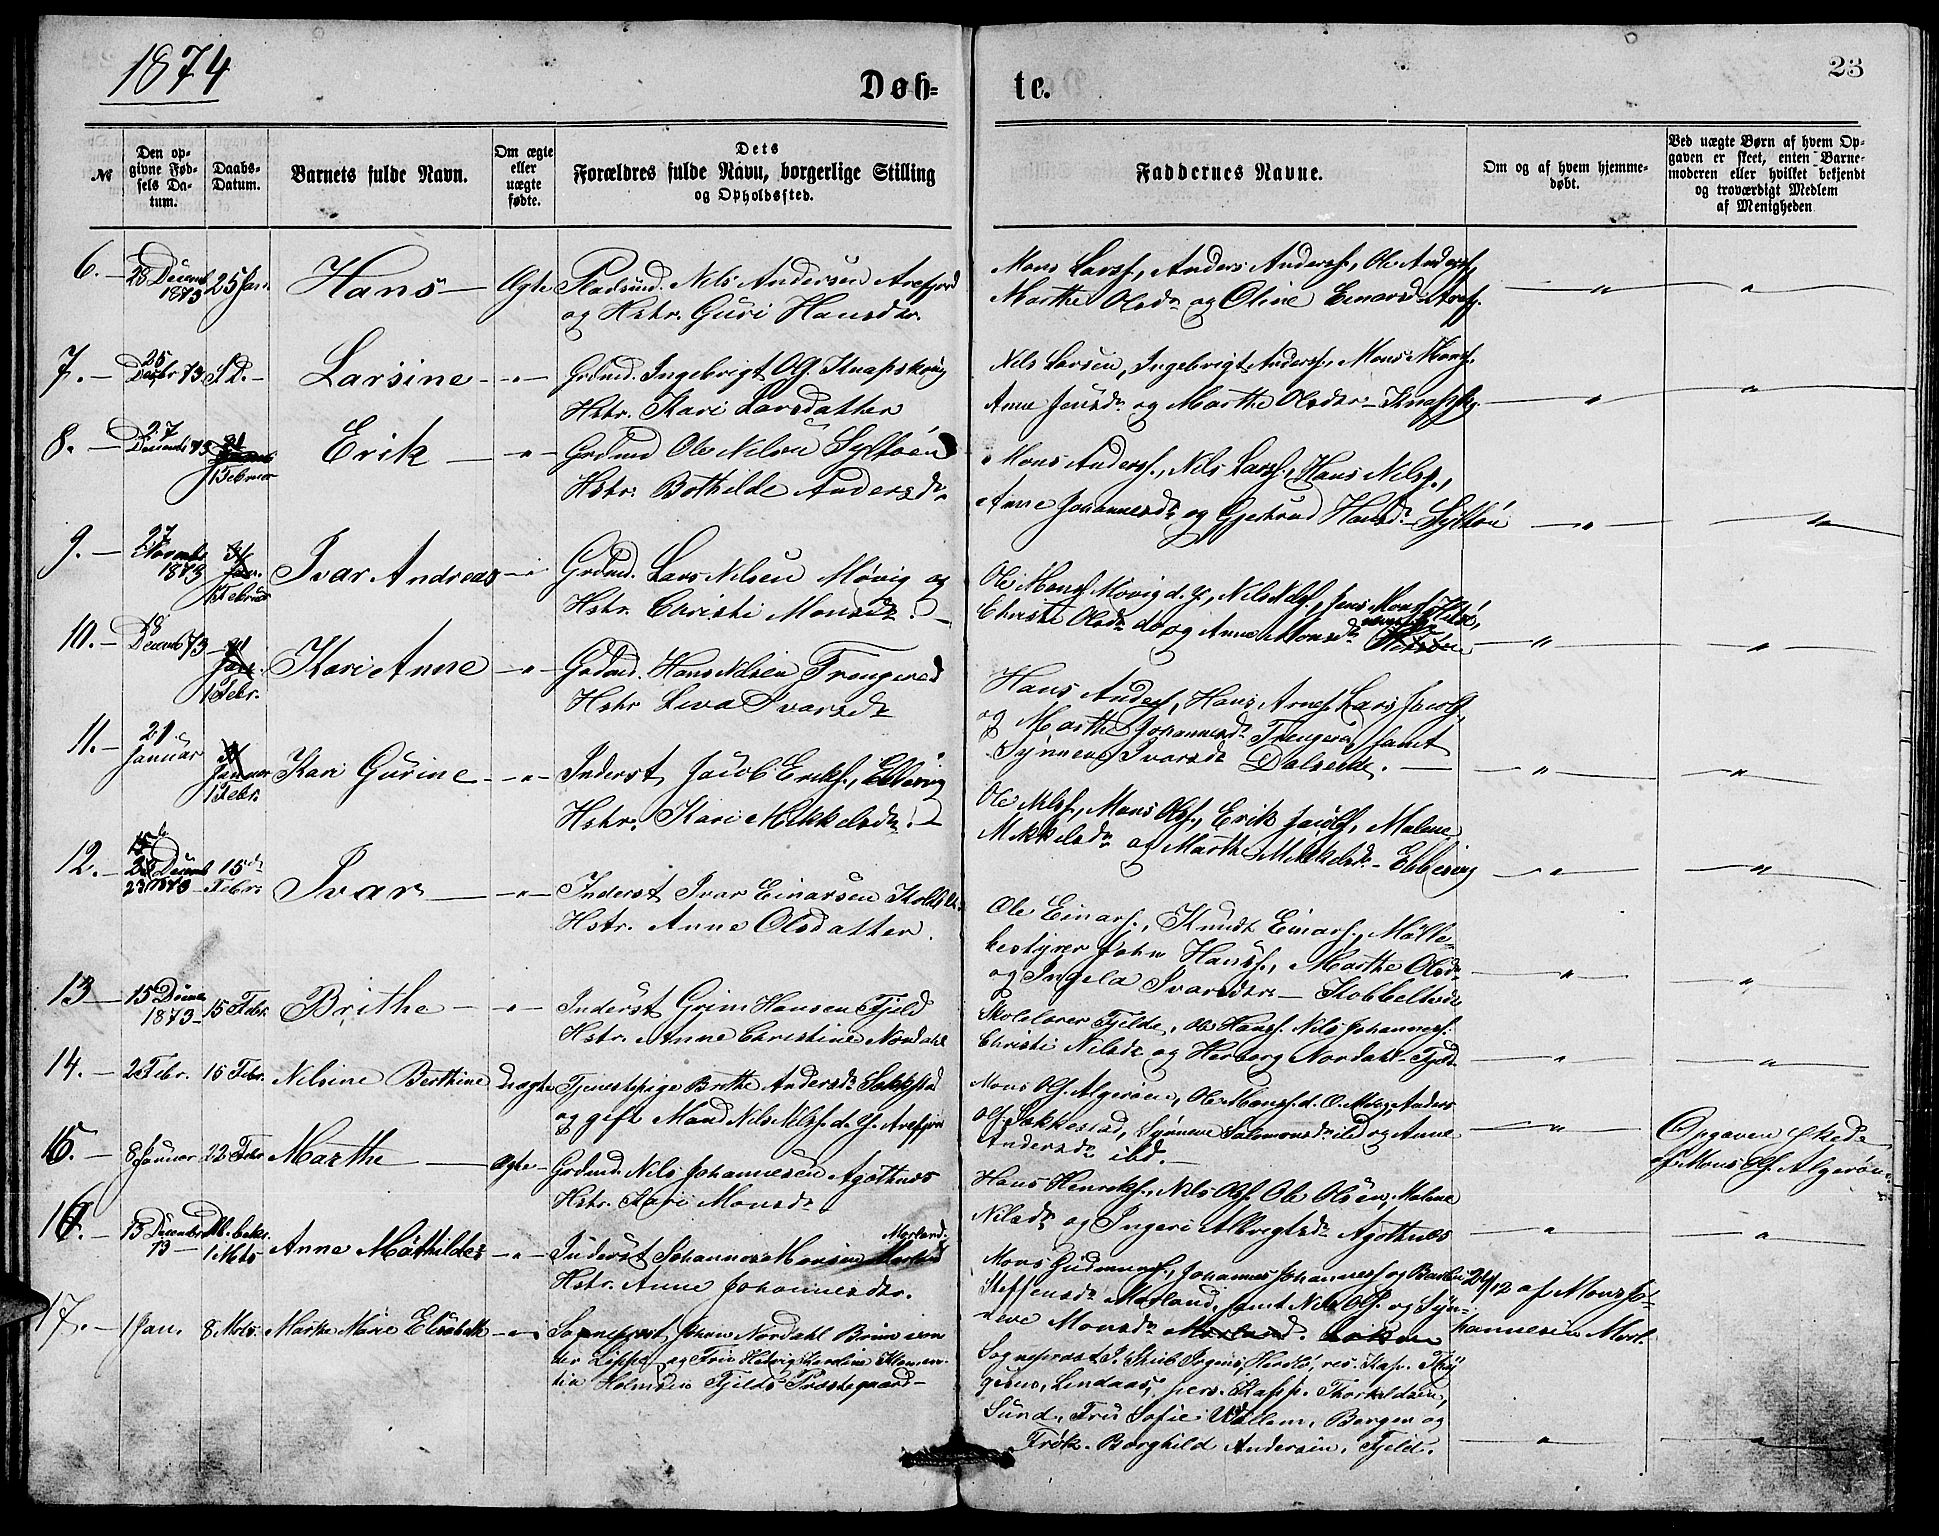 1874
Døb=
te.
23
№
Den op-
givne Fød-
sels Da-
tum.
Daabs-
Datum.
Barnets fulde Navn.
Om ægte
eller
uægte
fødte.
Dets
Forældres fulde Navn, borgerlige Stilling
og Opholdssted.
Faddernes Navne.
Om og af hvem hjemme-
døbt.
Ved uægte Børn af hvem Op-
gaven er skeet, enten Barne-
moderen eller hvilket bekjendt
og troværdigt Medlem
af Menigheden
6. 28 Decemb 1873 25 Jan. Hans Ægte Pladsmd. Nils Andersen Arefjord
og Hstr. Guri Hansdtr.
Mons Larss., Anders Anderss., Ole Anderss,
Marthe Olsdr og Oline Einarsd Arefj.
7. 25 Decbr 73 S.D. Larsine Grdmd. Ingebrigt Ols. Knapskoug
Hstr. Kari Larsdatter
Nils Larsen, Ingebrigt Anderss., Mons Monss.
Anne Jensdr og Marthe Olsdtr Knapsk.
8. 27 Decemb 73 1 Februar Erik Grdmd Ole Nilsen Syltøen
Hstr. Bothilde Andersdr
Mons Anderss., Nils Larss., Hans Nilss.,
Anne Johannesdr og Gjertrud Hansdr Syltøen
9. 27 Novemb 1873 1 Februar Ivar Andreas Grdmd. Lars Nilsen Møvig og
Hstr. Christi Monsdr.
Ole Monss Møvig d. y., Nils Nilss., Jens Monss
Christi Olsdr do og Anne Monsdr
10. Decemb 73 1 Febr. Kari Anne Grdmd. Hans Nilsen Trengered
Hstr Siva Ivarsdr
Hans Anderss, Hans Arness Lars Jacobs,
og Marthe Johannesdr Trengered samt
Synneve Ivarsdr Dalseide.
11. 21 Januar 1 Febr. Kari Gurine Inderst Jacob Eriks., Ebbesvig
Hstr. Kari Mikkelsdr.
Ole Nilss., Mons Ols., Erik Jacobs, Malene
Mikkelsdr og Marthe Mikkelsdr Ebbesvig
12. 23 1873 15de Febr. Ivar Inderst Ivar Einarsen
Hstr. Anne Olsdatter.
Ole Einars., Knudt Einars., Mølle-
bestyrer John Hanss., Marthe Olsdr
og Ingela Ivarsdtr Skobbelts
13 15 Decemb 1873 15 Febr. Brithe Inderst Grim Hansen Fjeld
Hstr. Anne Christine Nordahl
Skolelærer Fjelde, Ole Hanss. Nils Johanness.
Christi Nilsdr og Herborg Nordahl Fjeld
14. 2 Febr. 15 Febr. Nilsine Berthine Uægte Tjenestepige Brithe Andersdr Sækkestad
og gift Mand Nils Nilss. d. y. Arefjord
Mons Ols. Algerøen, Ole Monss. d. Møvig, Anders
Ols Sækkestad, Synneve Salomonsdr ibd og Anne
Andersdr ibd.
Opgaven skede
af Mons Ols Algerøen
15. 8 Januar 22 Febr Marthe Ægte Grdmd. Nils Johannesen Agotnæs
Hstr. Kari Monsdr
Hans Henriks., Nils Olss. Ole Olsen, Malene
Nilsdr og Ingeri Albregtsdr Agotnæs
16. 13 Decembr 73 1 Mrts Anne Mathilde Inderst Johannes Monsen Morland.
Hstr. Anne Johannesdtr.
Mons Gudmunds., Johannes Johanness og Barbro
Steffensdr Morland, samt Nils Ols. og Syn-
neve Monsdr
26/12 af Mons Jo-
hannesen Morl.
17. 1 Jan. 8 Mrts. Marthe Marie Elisabeth Sogneprest Johan Nordahl Brun von
der Lippe og Fru Hedvig Karoline Klemen-
tia Holmsen Fjelds Præstegaard
Sogneprest J. Stub Irgens, Herlø, res. Kap.
Lindaas, pers. Kapp. Thorkildsen,
Sund, Fru Sofie Wallem, Bergen og
Frøk. Borghild Andersen, Fjeld.